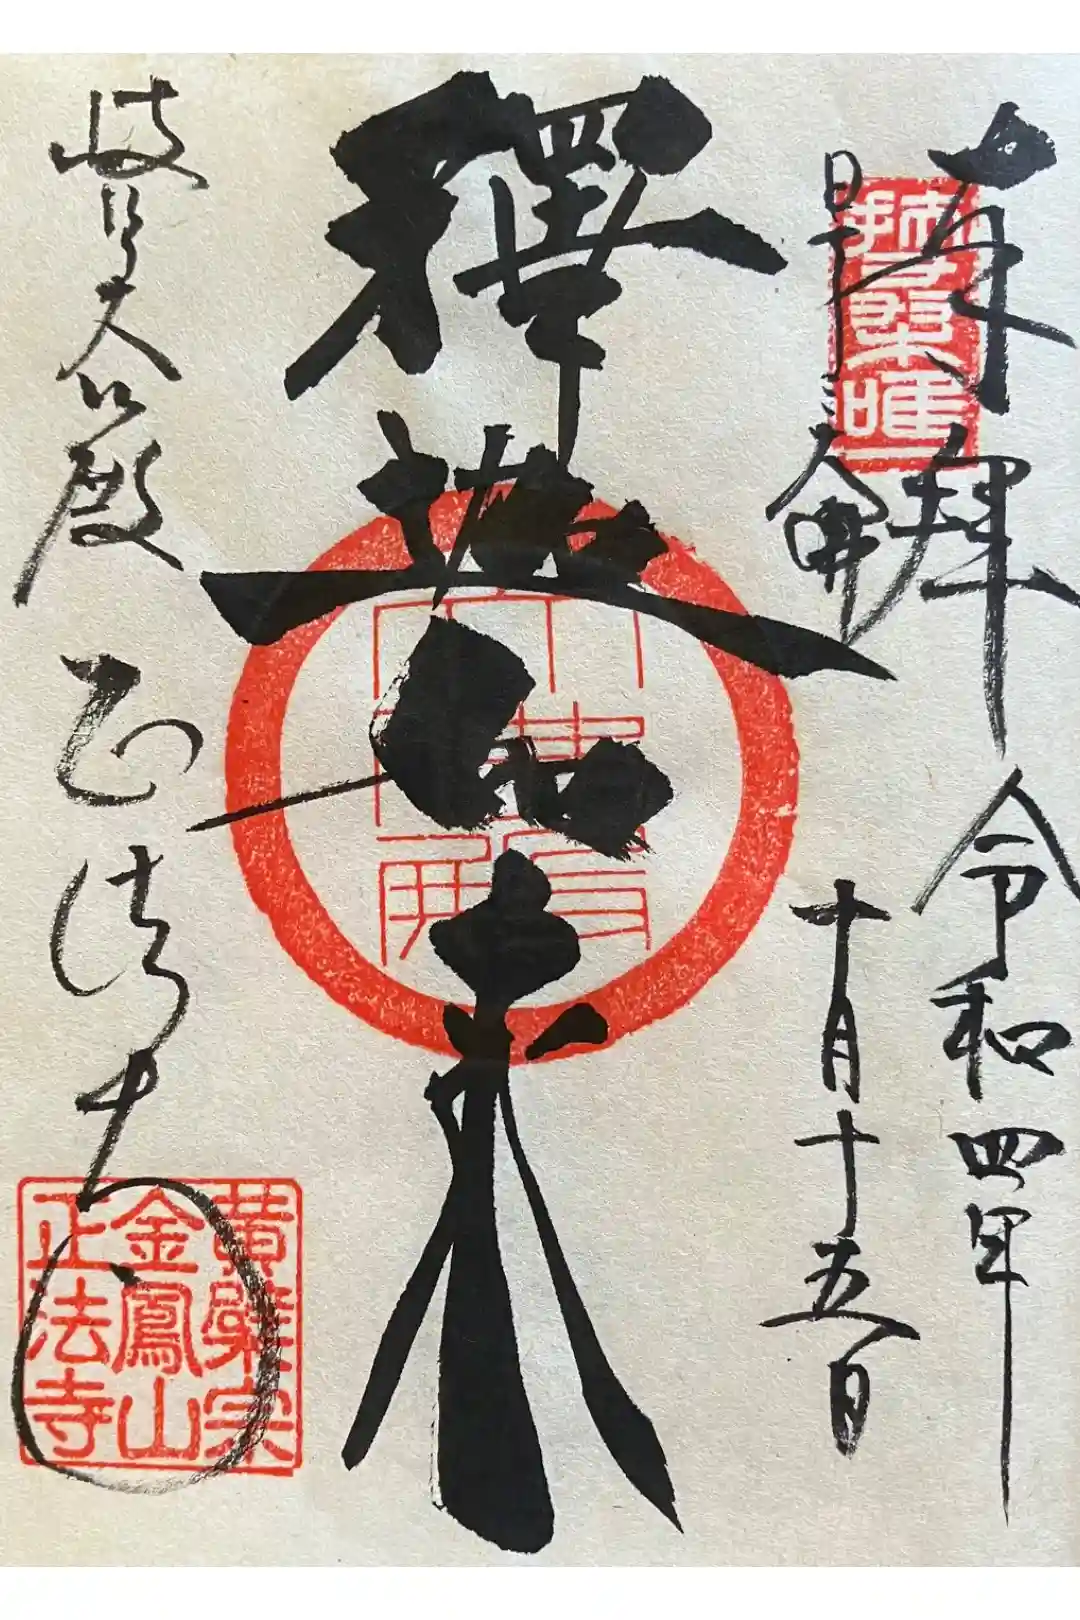 奉拝 令和四年
十月十五日
釋迦如来
岐阜大仏殿 正法寺
黄檗宗
金鳳山
正法寺